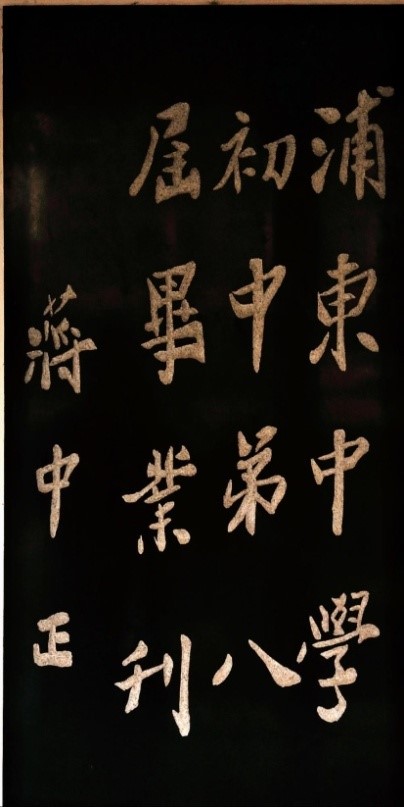 浦東中學
初中弟八
屆畢業刊
蔣中正